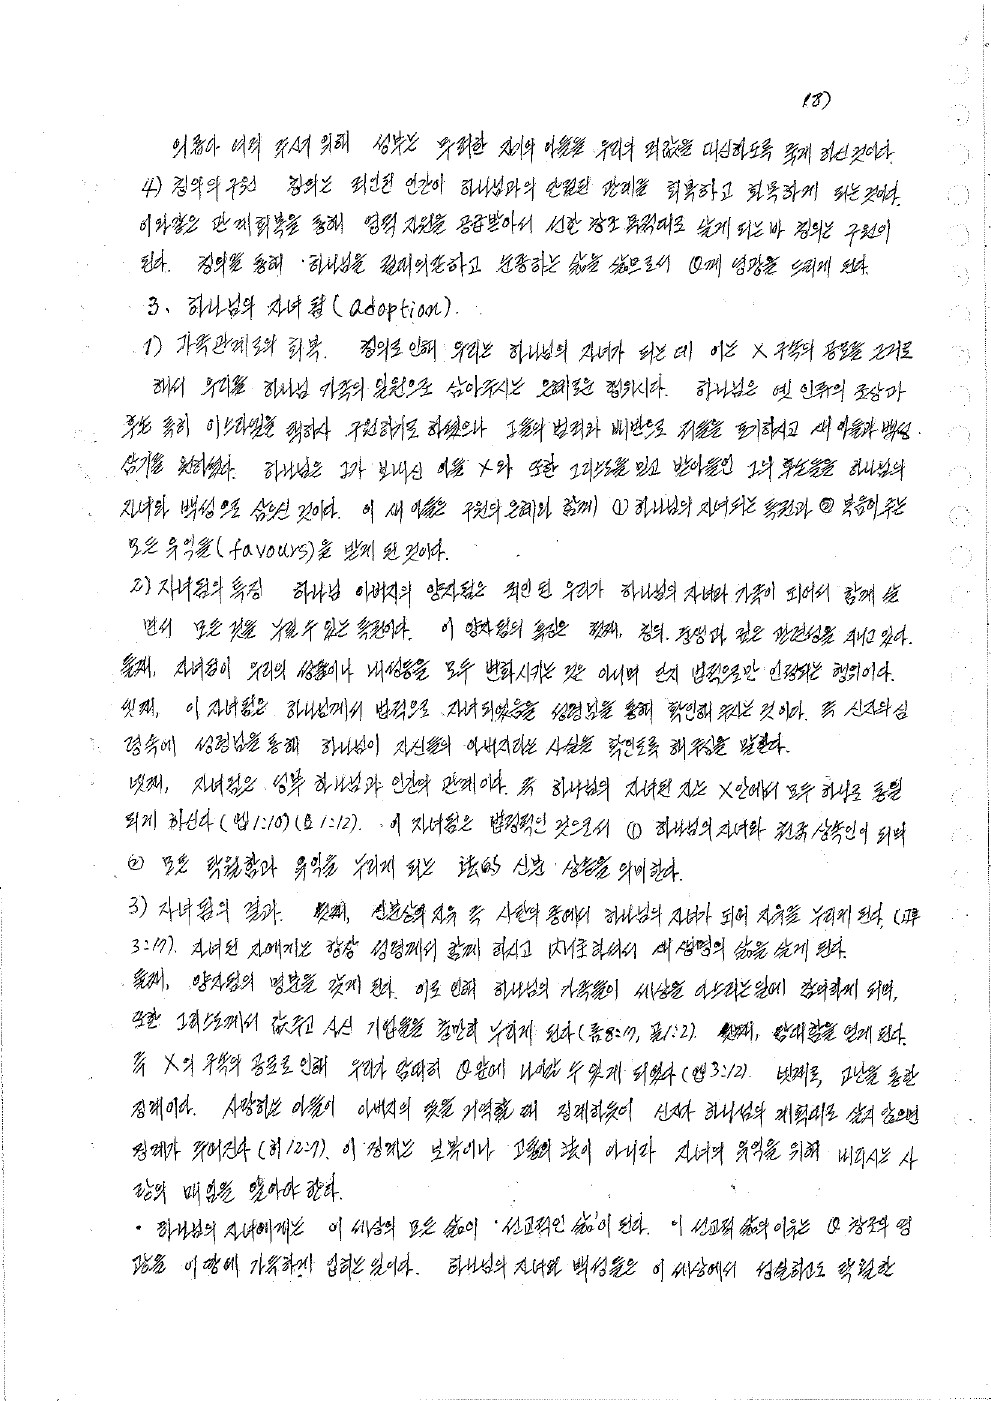 (8)
의롭다 여겨 주시기 위해 성부는 유일한 자기의 아들을 우리의 죄값을 대신하도록 죽게 하신 것이다.
4) 칭의의 구원 칭의는 죄인된 인간이 하나님과의 단절된 관계를 회복하고 화목하게 되는 것이다.
이와같은 관계회복을 통해 영적 자원을 공급받아서 선한 창조 목적대로 살게 되는바 칭의는 구원이
된다. 칭의를 통해 하나님을 전폐의뢰하고 순종하는 삶을 삶으로서 θ께 영광을 드리게 된다.
3. 하나님의 자녀됨(adoption).
1) 가족관계로의 회복. 칭의로 인해 우리는 하나님의 자녀가 되는데 이는 X 구속의 공로를 근거로
해서 우리를 하나님 가족의 일원으로 삼아주시는 은혜로운 행위시다. 하나님은 옛 인류의 조상과
후손 특히 이스라엘을 택하사 구원하기도 하셨으나 그들의 범죄와 배반으로 저들을 포기하시고 새 아들과 백성
삼기를 원하셨다. 하나님은 그가 보내신 아들 X와 또한 그리스도를 믿고 받아들인 그의 후손들을 하나님의
자녀와 백성으로 삼으신 것이다. 이 새 아들은 구원의 은혜와 함께 ① 하나님의 자녀되는 특권과 ② 복음이 주는
모든 유익을(favours)을 받게 된 것이다.
2) 자녀됨의 특징 하나님 아버지의 양자됨은 죄인 된 우리가 하나님의 자녀와 가족이 되어서 함께 살
면서 모든 것을 누릴 수 있는 특권이다. 이 양자됨의 특징은 첫째, 칭의, 중생과 깊은 관련성을 지니고 있다.
둘째, 자녀됨이 우리의 성품이나 내성등을 모두 변화시키는 것은 아니며 단지 법적으로만 인정되는 행위이다.
셋째, 이 자녀됨은 하나님께서 법적으로 자녀되었음을 성령님을 통해 확인해 주시는 것이다. 즉 신자의 심
령속에 성령님을 통해 하나님이 자신들의 아버지라는 사실을 확인토록 해주심을 말한다.
넷째, 자녀됨은 성부 하나님과 인간의 관계이다. 즉 하나님의 자녀된 자는 X안에서 모두 하나로 통일
되게 하신다(엡1:10)(요1:12). 이 자녀됨은 법정적인 것으로서 ① 하나님의 자녀와 천국 상속인이 되며
② 모든 탁월함과 유익을 누리게 되는 法的 신분 상승을 의미한다.
3) 자녀됨의 결과. 첫째, 신분상의 자유 즉 사탄의 종에서 하나님의 자녀가 되어 자유를 누리게 된다. (고후
3:17). 자녀된 자에게는 항상 성령께서 함께 하시고 内住하셔서 새 생명의 삶을 살게 된다.
둘째, 양자됨의 명분을 갖게 된다. 이로 인해 하나님의 가족들이 세상을 다스리는 일에 참여하게 되며,
또한 그리스도께서 값주고 사신 기업들을 충만히 누리게 된다(롬8:17, 골1:2). 셋째, 담대함을 얻게 된다.
즉 X의 구속의 공로로 인해 우리가 담대히 θ앞에 나아갈 수 있게 되었다(엡3:12). 넷째로, 고난을 통한
징계이다. 사랑하는 아들이 아버지의 뜻을 거역할 때 징계하듯이 신자가 하나님의 계획대로 살지 않으면
징계가 주어진다(히12:7). 이 징계는 보복이나 고통의 法이 아니라 자녀의 유익을 위해 내리시는 사
랑의 매임을 알아야 한다.
· 하나님의 자녀에게는 이 세상의 모든 삶이 '선교적인 삶'이 된다. 이 선교적 삶의 이유는 θ 창조의 영
광을 이 땅에 가득하게 입히는 일이다. 하나님의 자녀와 백성들은 이 세상에서 성실하고도 탁월한